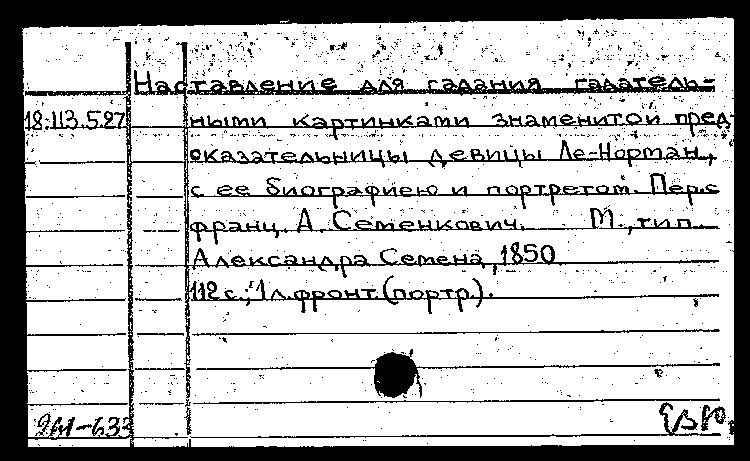 Наставление для гадания гадатель-
18:113.5.27 ными картинками знаменитой пред-
сказательницы девицы Ле-Норман,
с ее биографиею и портретом. Пер.с
франц. А. Семенкович. М., тип.
Александра Семена, 1850.
112 с.; 1 л.фронт.(портр.).